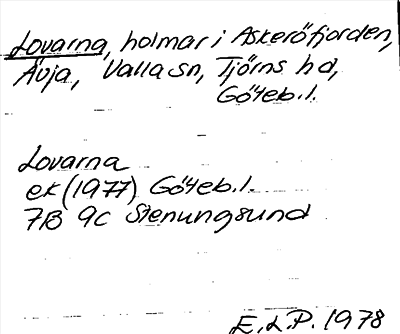 Lovarna, holmar i Askeröfjorden,
Ävja, Valla sn, Tjörns hd,
Göteb. l.
Lovarna
ek (1977) Göteb. l.
7B 9c Stenungsund
E.L.P. 1978